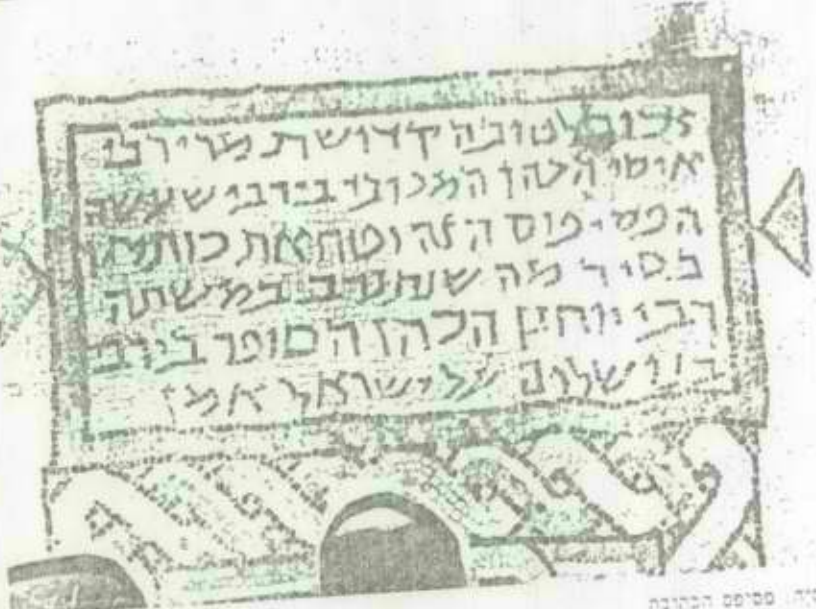 זכור לטובה קדושת מרי רבי
איסי הכהן המכובד בירבי שעשה
הפסיפוס הזה וטח את כותליו
בסיד מה שנתנדב במשתה
רבי יוחנן הכהן הסופר בירבי
בנו שלום על ישראל אמן
פסיפס הכתובת